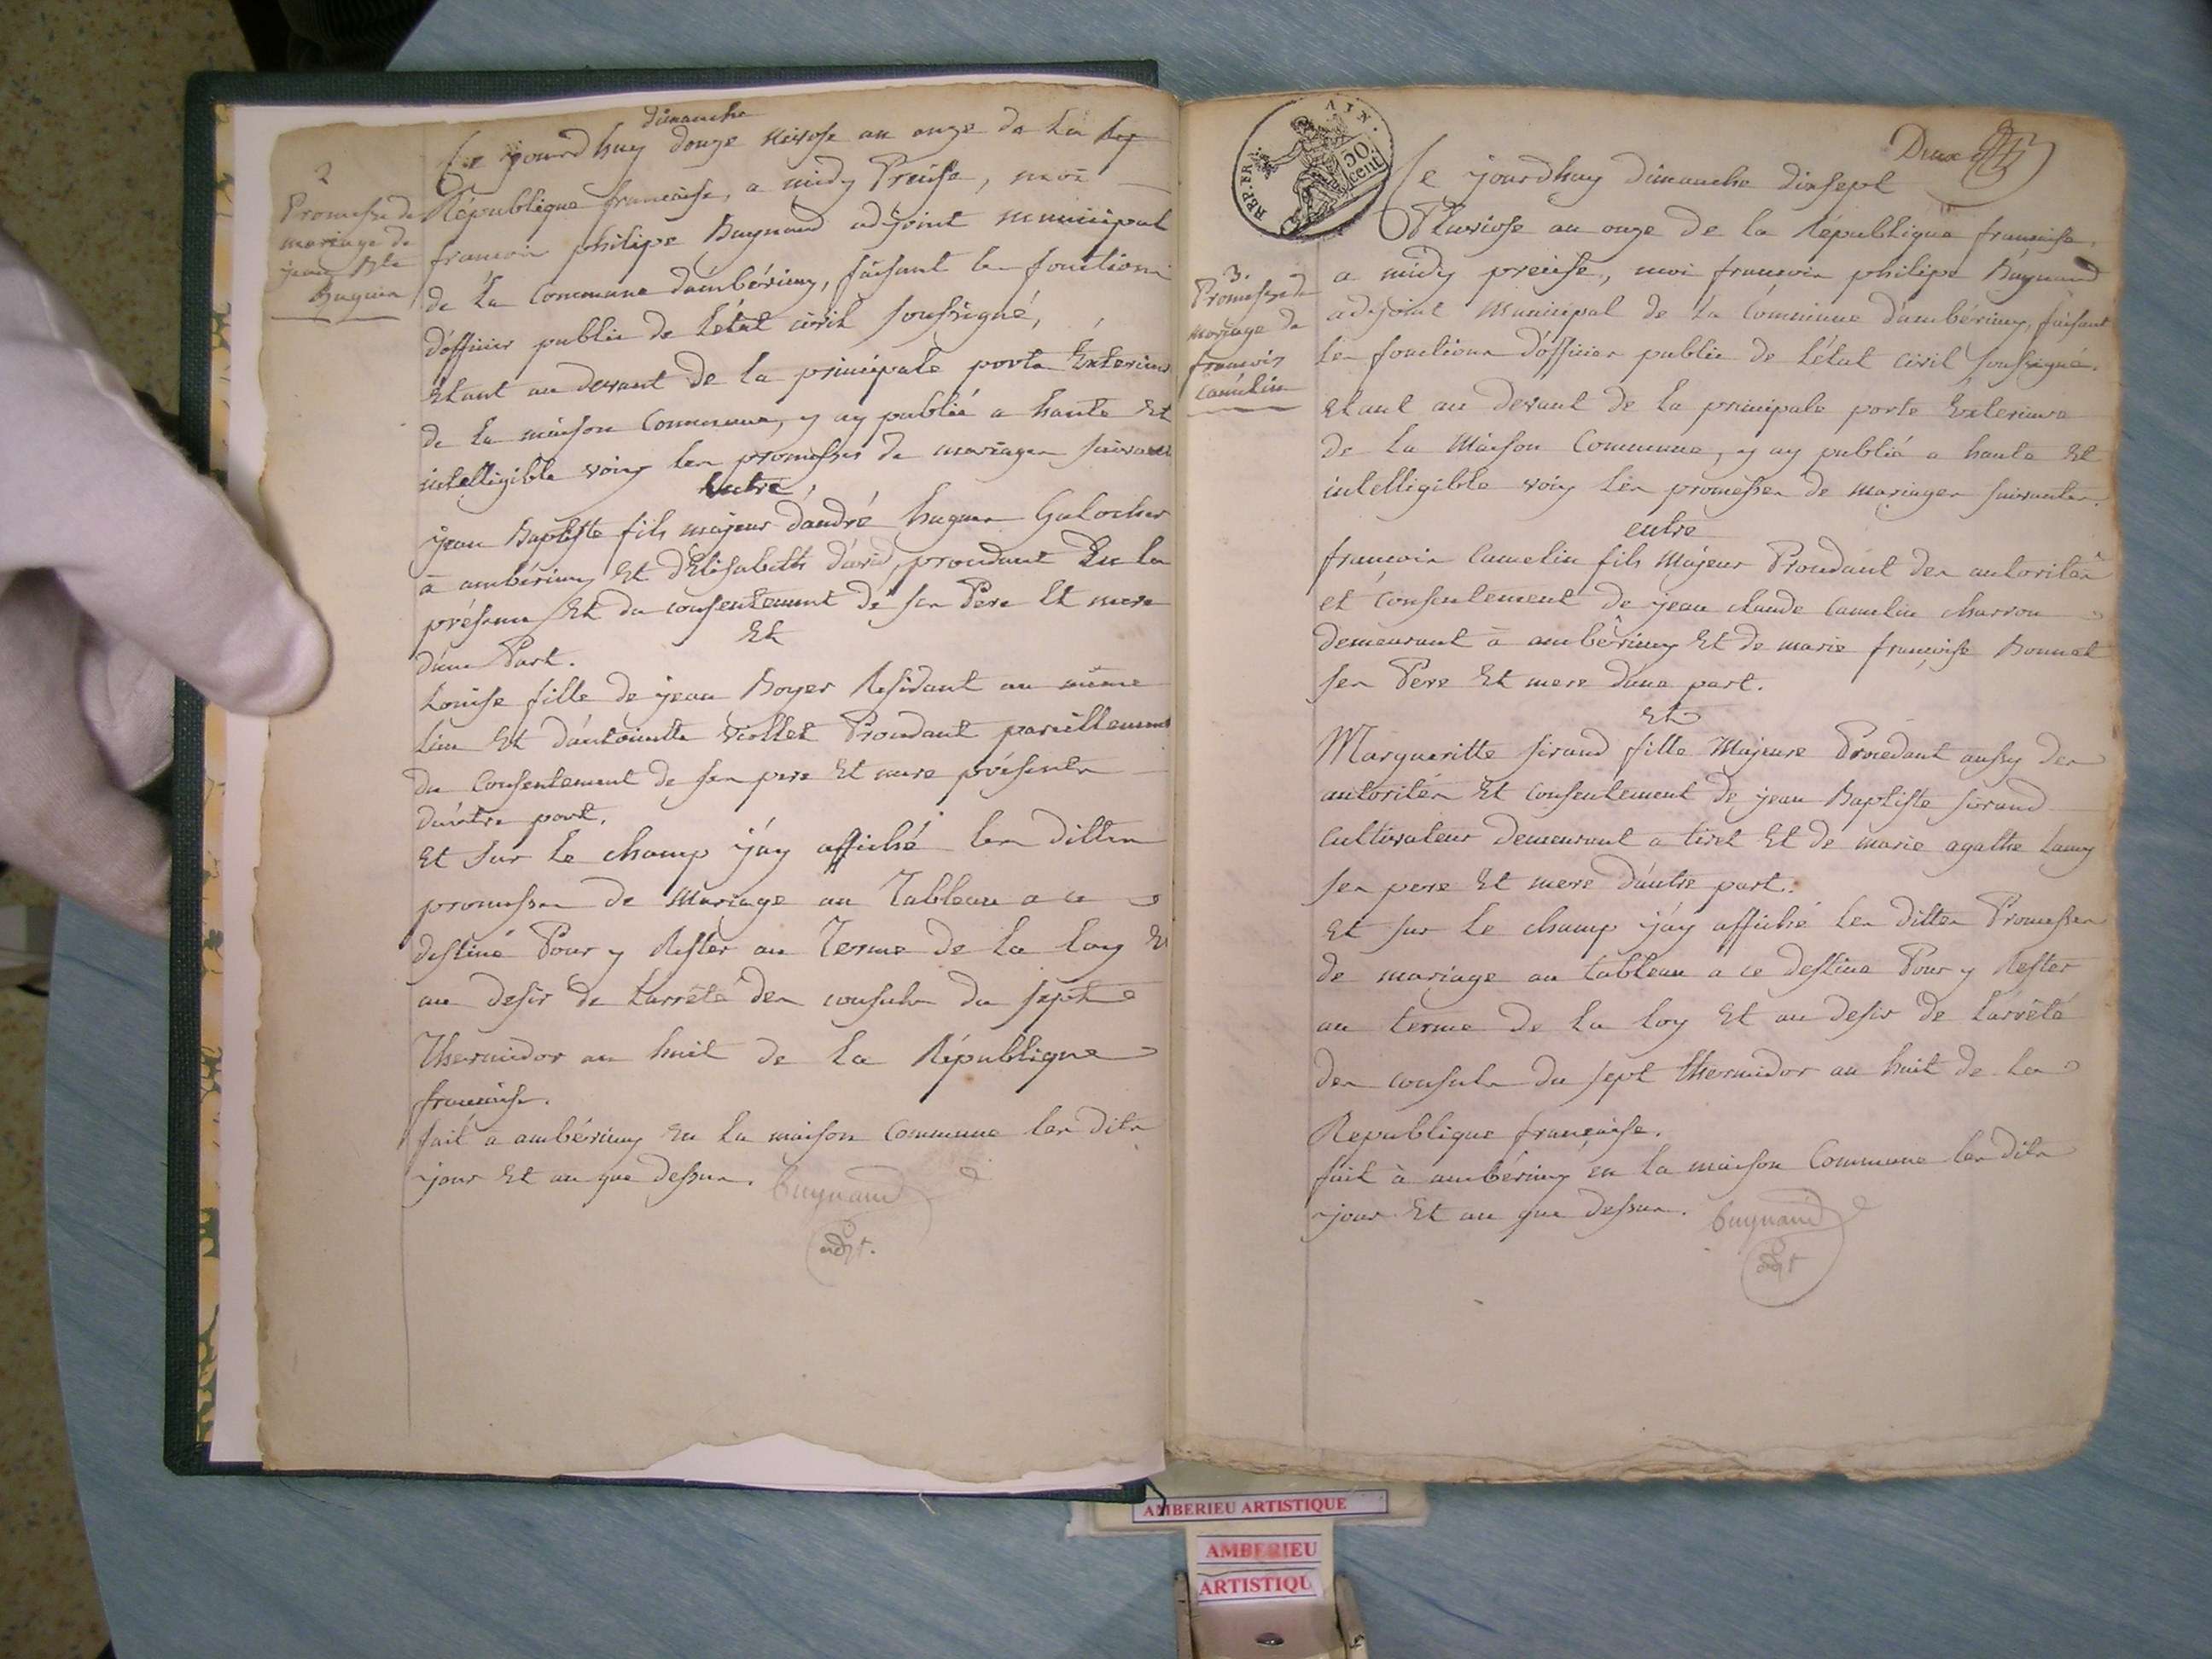 2
Promesse de
mariage de
jean Bte
huguer
dimanche
Ce jourd'huy douze nivose an onze de La Rep
République francaise, a midy Précise, moi
francois philipe Bugnand adjoint municipal
de La Commune d'ambérieu, faisant les fonctions
d'officier public de L'état civil soussigné,
Etant au devant de la principale porte Exterieure
de La maison Commune, y ay publié a haute Et
intelligible voix les promesses de mariages suivantes
Entre
jean Baptiste fils majeur d'andré hugues Galocher
à ambérieu Et d'Elisabeth david, procedant En la
présence Et du consentement de ses Pere Et mere
d'une Part.
Et
Louise fille de jean Boyer Résidant au même
Lieu Et d'antoinette viollet Procedant pareillement
du Consentement de ses pere Et mere présents
d'autre part.
Et sur Le champ j'ay affiché les dittes
promesses de Mariage au Tableau a ce
destiné Pour y Rester au Terme de La Loy Et
au desir de L'arrêté des consuls du sept
Thermidor an huit de La République
francaise.
fait a ambérieu En La maison Commune les dits
jour Et an que dessus. Bugnand
adjt.
REP. FR.
50
cent
Deux
Ce jourd'huy dimanche dix sept
Pluviose an onze de la République francaise,
a midy precise, moi francois philipe Bugnand
adjoint Municipal de La Commune d'ambérieu, faisant
Les fonctions d'officier public de L'état civil soussigné.
Etant au devant de La principale porte Exterieure
de La Maison Commune, y ay publié a haute Et
intelligible voix Les promesses de mariages suivantes.
3.
Promesse de
mariage de
francois
camelin
entre
francois Camelin fils Majeur Procedant des autorités
et Consentement de jean claude Camelin charron
demeurant à ambérieu Et de marie françoise Bonnet
ses Pere Et mere d'une part.
Et
Margueritte sirand fille Majeure Procedant aussy des
autorités Et consentement de jean Baptiste sirand
Cultivateur demeurant a tiret Et de marie agathe Lamy
ses pere Et mere d'autre part.
Et sur Le champ j'ay affiché Les dittes Promesses
de mariage au tableau a ce destiné Pour y Rester
au terme de La Loy Et au desir de L'arrêté
des consuls du sept thermidor an huit de La
Republique francaise.
fait à ambérieu en La maison Commune les dits
jour Et an que dessus. Bugnand
adjt
AMBERIEU ARTISTIQUE
AMBERIEU
ARTISTIQU